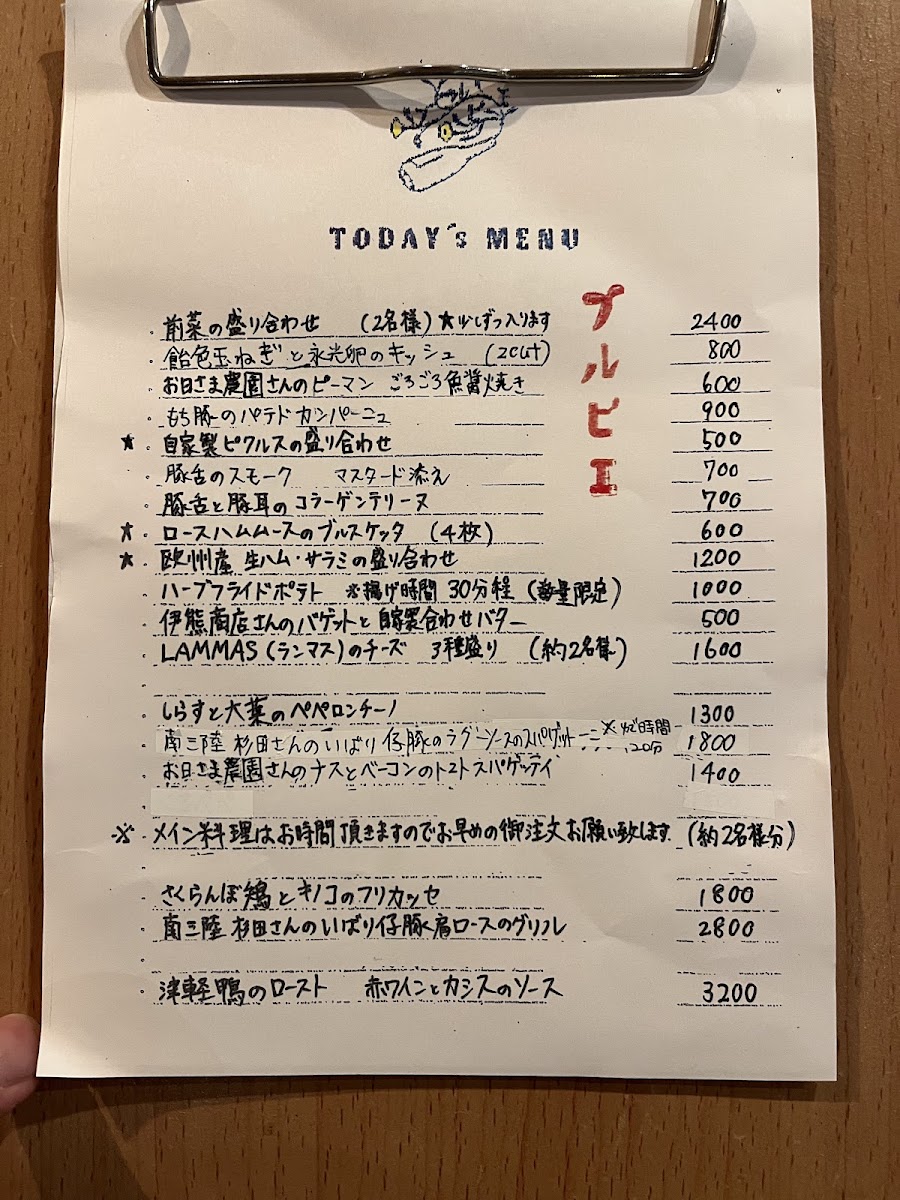 TODAY's MENU
ブルピエ
・前菜の盛り合わせ (2名様) ★少しずつ入ります 2400
・飴色玉ねぎと永光卵のキッシュ (2cut) 800
・お日さま農園さんのピーマン ごろごろ魚醤焼き 600
・もち豚のパテドカンパーニュ 900
★・自家製ピクルスの盛り合わせ 500
・豚舌のスモーク マスタード添え 700
・豚舌と豚耳のコラーゲンテリーヌ 700
★・ロースハムムースのブルスケッタ (4枚) 600
★・欧州産 生ハム・サラミの盛り合わせ 1200
・ハーブフライドポテト ※揚げ時間 30分程 (数量限定) 1000
・伊熊商店さんのバゲットと自家製合わせバター 500
・LAMMAS (ランマス)のチーズ 3種盛り (約2名様) 1600
・しらすと大葉のペペロンチーノ 1300
・南三陸 杉田さんのいばり仔豚のラグーソースのスパゲッティーニ ※ゆで時間 20分 1800
・お日さま農園さんのナスとベーコンのトマトスパゲッティ 1400
※・メイン料理はお時間頂きますのでお早めの御注文お願い致します。(約2名様分)
・さくらんぼ鶏とキノコのフリカッセ 1800
・南三陸 杉田さんのいばり仔豚肩ロースのグリル 2800
・津軽鴨のロースト 赤ワインとカシスのソース 3200